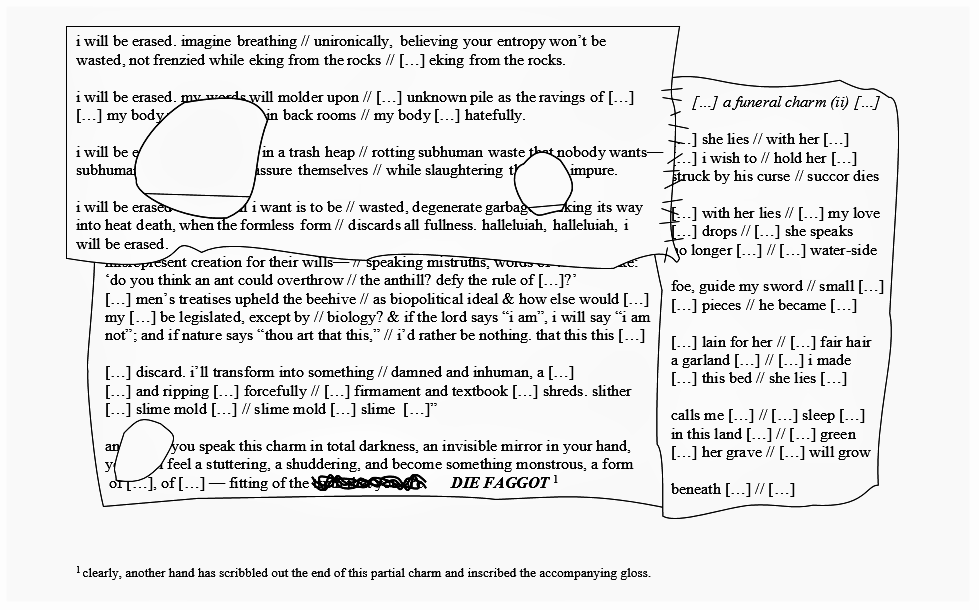 i will be erased. imagine breathing // unironically, believing your entropy won't be
wasted, not frenzied while eking from the rocks // […] eking from the rocks.
i will be erased. my words will molder upon // […] unknown pile as the ravings of […]
[…] my body in back rooms // my body […] hatefully.
i will be e in a trash heap // rotting subhuman waste that nobody wants—
subhuma issure themselves // while slaughtering th impure.
i will be erased i want is to be // wasted, degenerate garbag king its way
into heat death, when the formless form // discards all fullness. halleluiah, halleluiah, i
will be erased.
misrepresent creation for their wills— // speaking mistruths, words
'do you think an ant could overthrow // the anthill? defy the rule of […]?'
[…] men's treatises upheld the beehive // as biopolitical ideal & how else would […]
my […] be legislated, except by // biology? & if the lord says "i am", i will say "i am
not"; and if nature says "thou art that this," // i'd rather be nothing. that this this […]
[…] discard. i'll transform into something // damned and inhuman, a […]
[…] and ripping […] forcefully // […] firmament and textbook […] shreds. slither
[…] slime mold […] // slime mold […] slime […]"
an you speak this charm in total darkness, an invisible mirror in your hand,
y feel a stuttering, a shuddering, and become something monstrous, a form
of […], of […] — fitting of the DIE FAGGOT 1
[…] a funeral charm (ii) […]
[…] she lies // with her […]
[…] i wish to // hold her […]
struck by his curse // succor dies
[…] with her lies // […] my love
[…] drops // […] she speaks
no longer […] // […] water-side
foe, guide my sword // small […]
[…] pieces // he became […]
[…] lain for her // […] fair hair
a garland […] // […] i made
[…] this bed // she lies […]
calls me […] // […] sleep […]
in this land […] // […] green
[…] her grave // […] will grow
beneath […] // […]
1 clearly, another hand has scribbled out the end of this partial charm and inscribed the accompanying gloss.